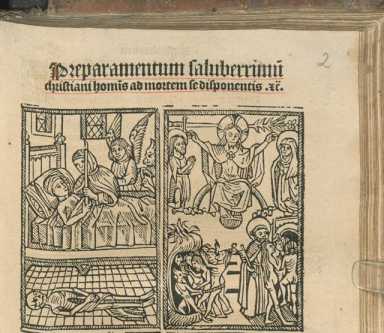 Preparamentum saluberrimū
christiani homīs ad mortem se disponentis .xc̄.
2